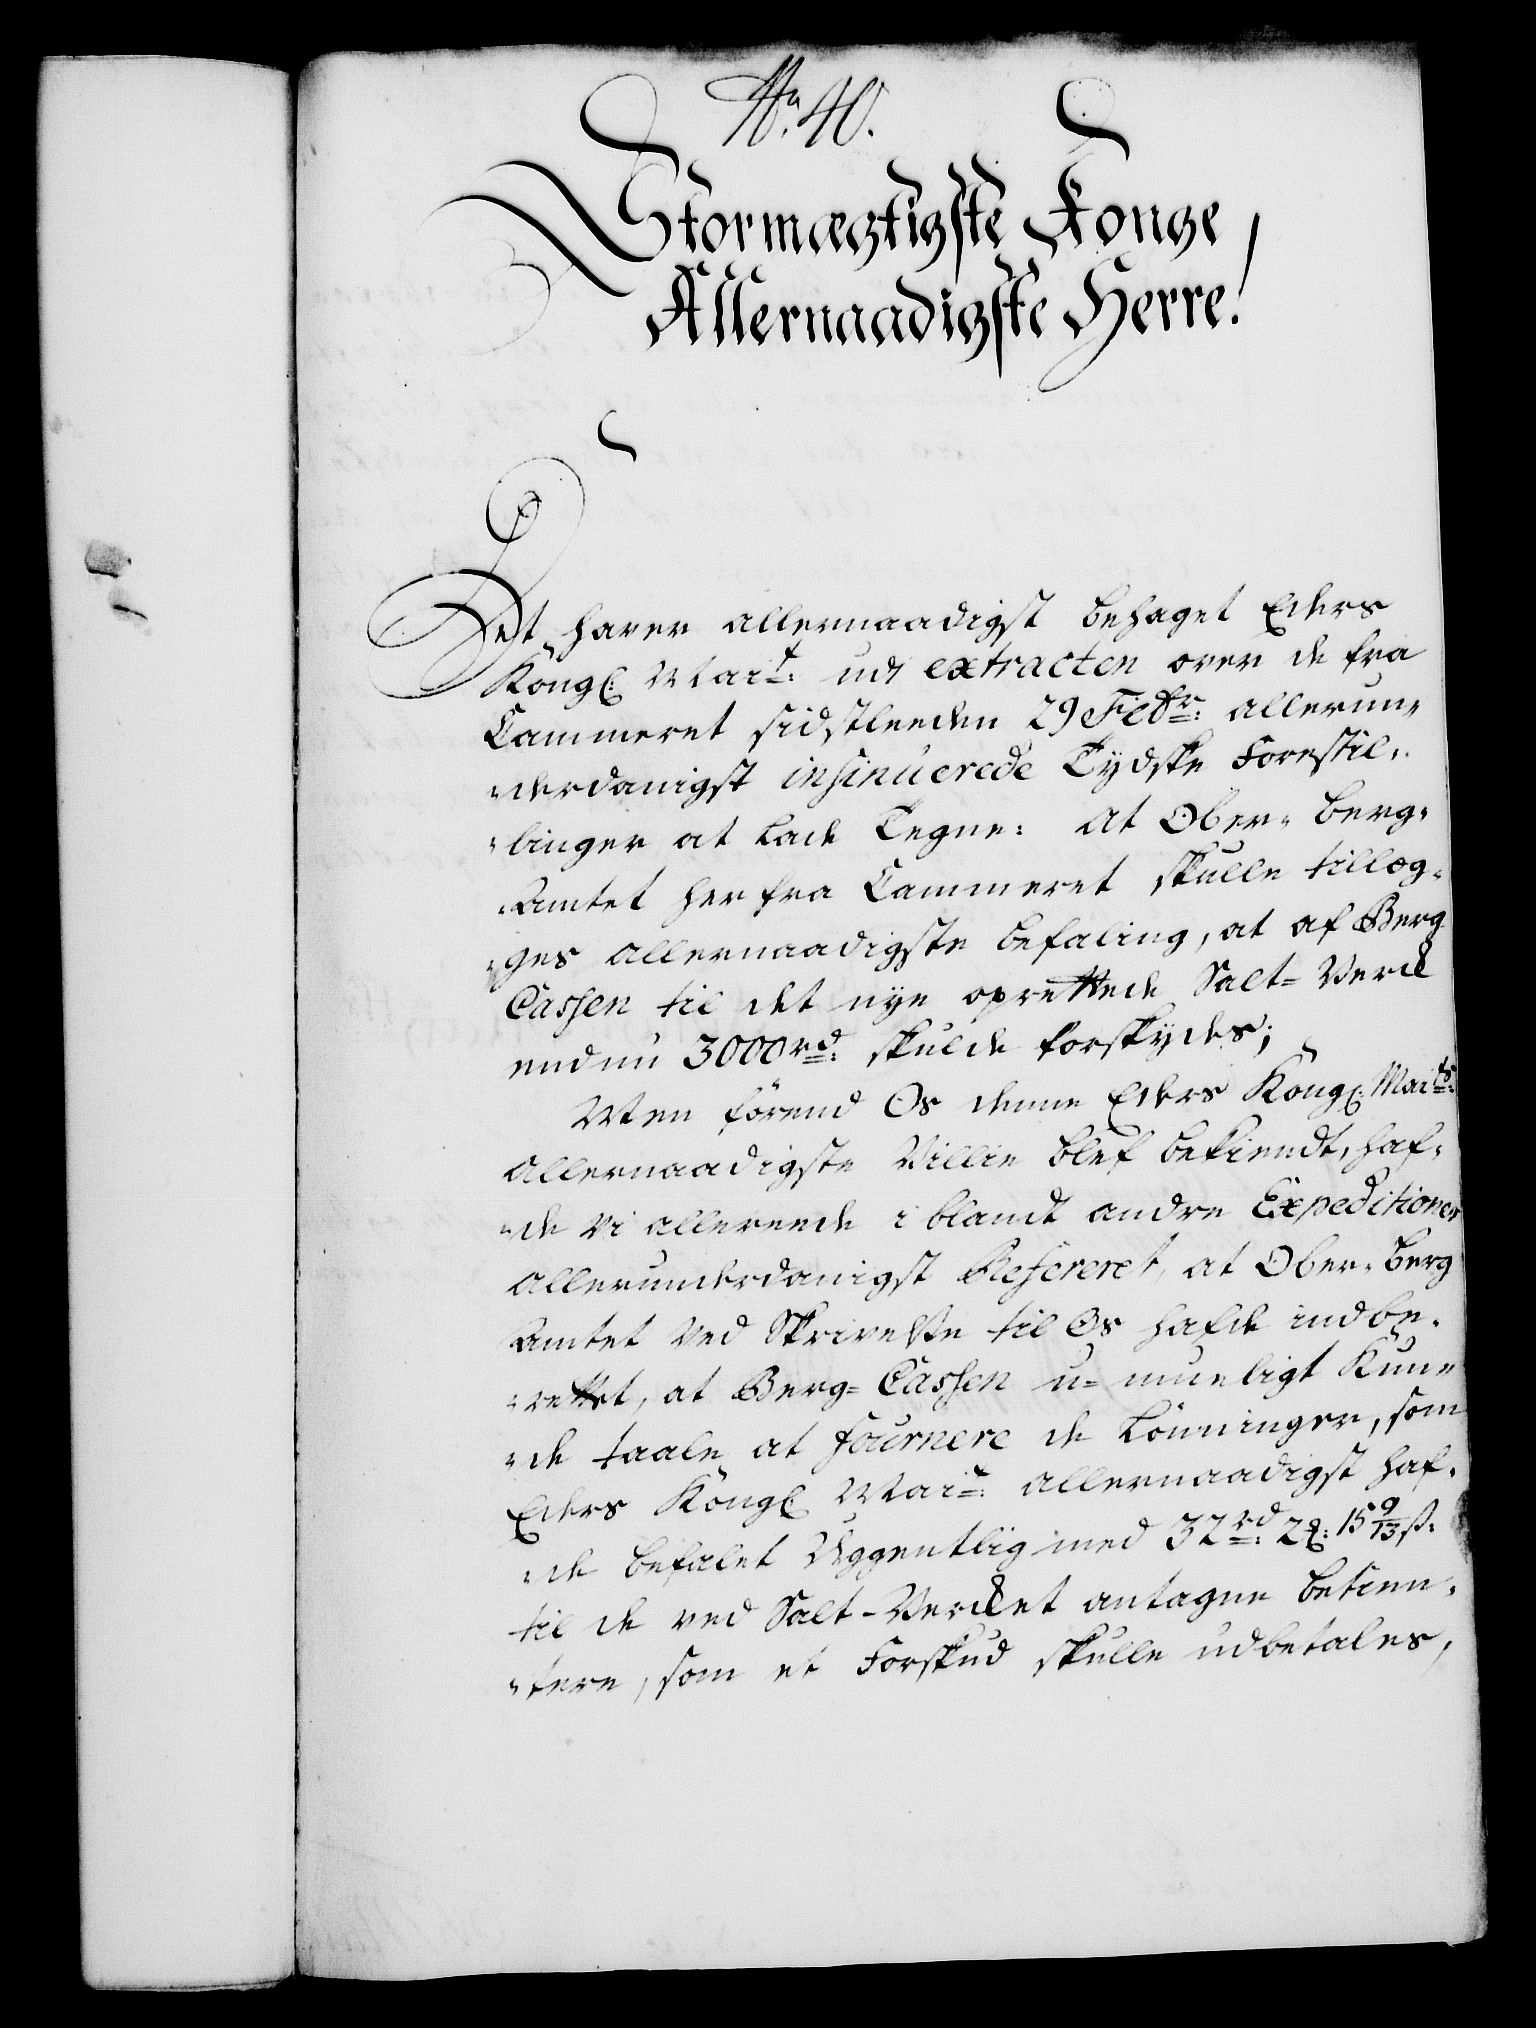 No. 40.
Stormægtigste Konge
Allernaadigste Herre!
Det haver allernaadigst behaget Eders
Kongl: Mait: udi extracten over de fra
Cammeret sidstleeden 29 Febr: allerun-
derdanigst insinuerede Tydske Forestil-
linger at lade Tegne: At Ober-Berg-
Amtet her fra Cammeret skulle tillæg-
ges allernaadigste befaling, at af Berg
Cassen til det nye oprettede Salt-Verck
endnu 3000 rd: skulde forskydes;
Men förend Os denne Eders Kongl: Maits:
allernaadigste Villie blef bekiendt, haf-
de vi allereede iblandt andre Expeditioner
allerunderdanigst Refereret, at Ober-Berg
Amtet ved Skrivelse til Os hafde indbe-
rettet, at Berg-Cassen u-mueligt kun-
de taale at fournere de Lönninger, som
Eders Kongl: Mait: allernaadigst haf-
de befalet Uggentlig med 32 rd: 2 ℔: 15 9/13 ß:
til de ved Salt-Verchet antagne betien-
tere, som et Forskud skulle udbetales,